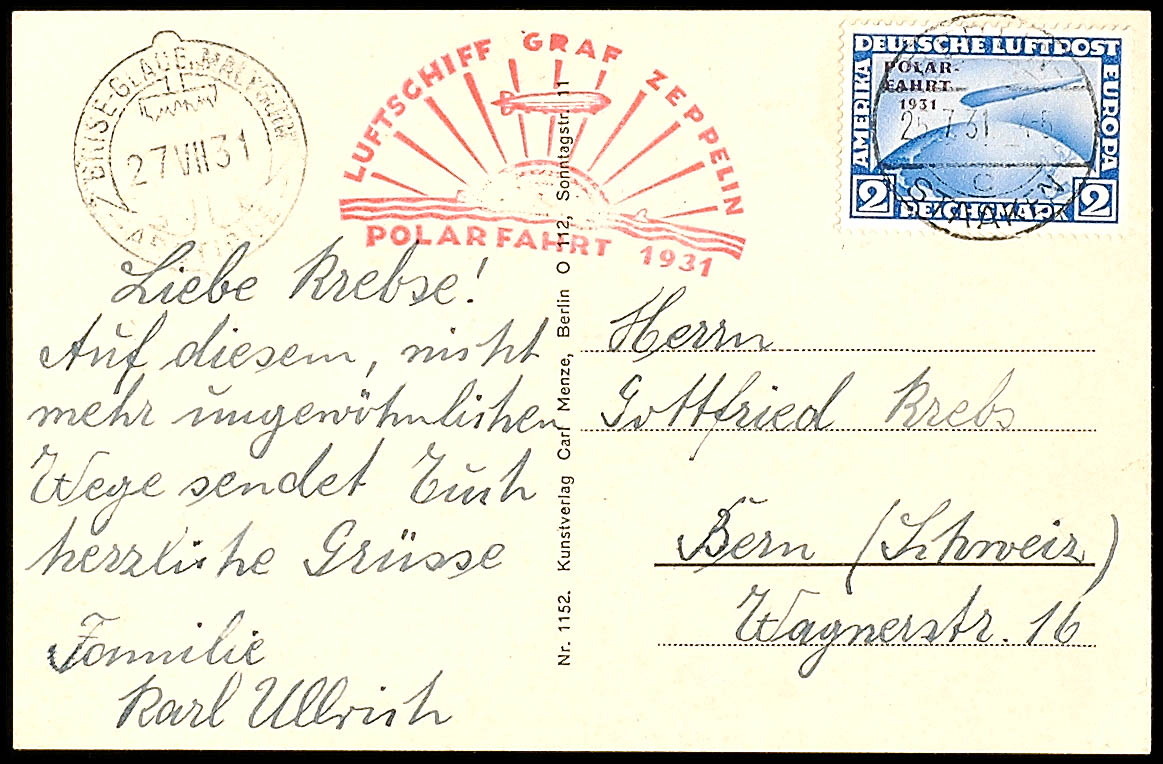 27 VII 31
LUFTSCHIFF GRAF ZEPPELIN
POLARFAHRT 1931
DEUTSCHE LUFTPOST
AMERIKA
EUROPA
POLAR-
FAHRT
1931
2 REICHSMARK 2
7.31
STAAKEN
Liebe Krebse!
Auf diesem, nicht
mehr ungewöhnlichen
Wege sendet Euch
herzliche Grüsse
Familie
Karl Ullrich
Nr. 1152. Kunstverlag Carl Menze, Berlin O 112, Sonntagstr. 11
Herrn
Gottfried Krebs
Bern (Schweiz)
Wagnerstr. 16